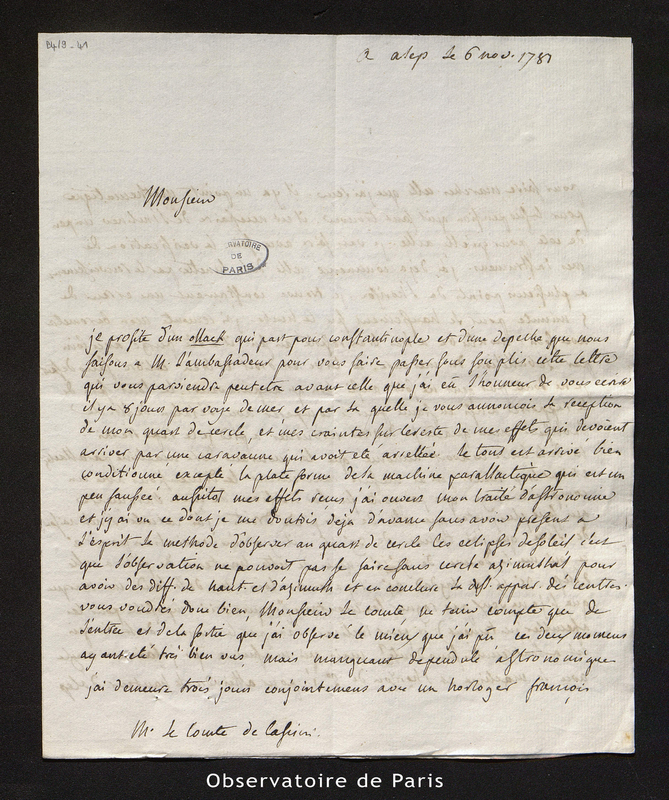 B4/9 - 41
a alep le 6 nov. 1781
Monsieur
OBSERVATOIRE
DE
PARIS
je profite d'un ollack qui part pour constantinople et d'une depeche que nous
faisons a M. l'ambassadeur pour vous faire passer sous son plis cette lettre
qui vous parviendra peutetre avant celle que j'ai eu l'honneur de vous ecrire
il y a 8 jours par voye de mer, et par la quelle je vous annonçois la reception
de mon quart de cercle, et mes craintes sur le reste de mes effets qui devoient
arriver par une caravanne qui avoit eté arrettée. le tout est arrivé bien
conditionné excepté la plateforme de la machine parallactique qui est un
peu faussée. aussitot mes effets recus j'ai ouvert mon traité d'astronomie
et j'y ai vu ce dont je me doutois deja d'avance sans avoir présent a
l'esprit la methode d'observer au quart de cercle les eclipses de soleil c'est
que l'observation ne pouvoit pas se faire sans cercle azimuthal pour
avoir des diff. de haut. et d'azimuth et en conclure la dist. appar. des centres.
vous voudrés donc bien, Monsieur le comte ne tenir compte que de
l'entrée et de la sortie que j'ai observé le mieux que j'ai pu ces deux momens
ayant eté très bien vus mais manquant de pendule astronomique
j'ai demeuré trois jours conjointement avec un horloger françois
Mr. le Comte de Cassini.
Observatoire de Paris